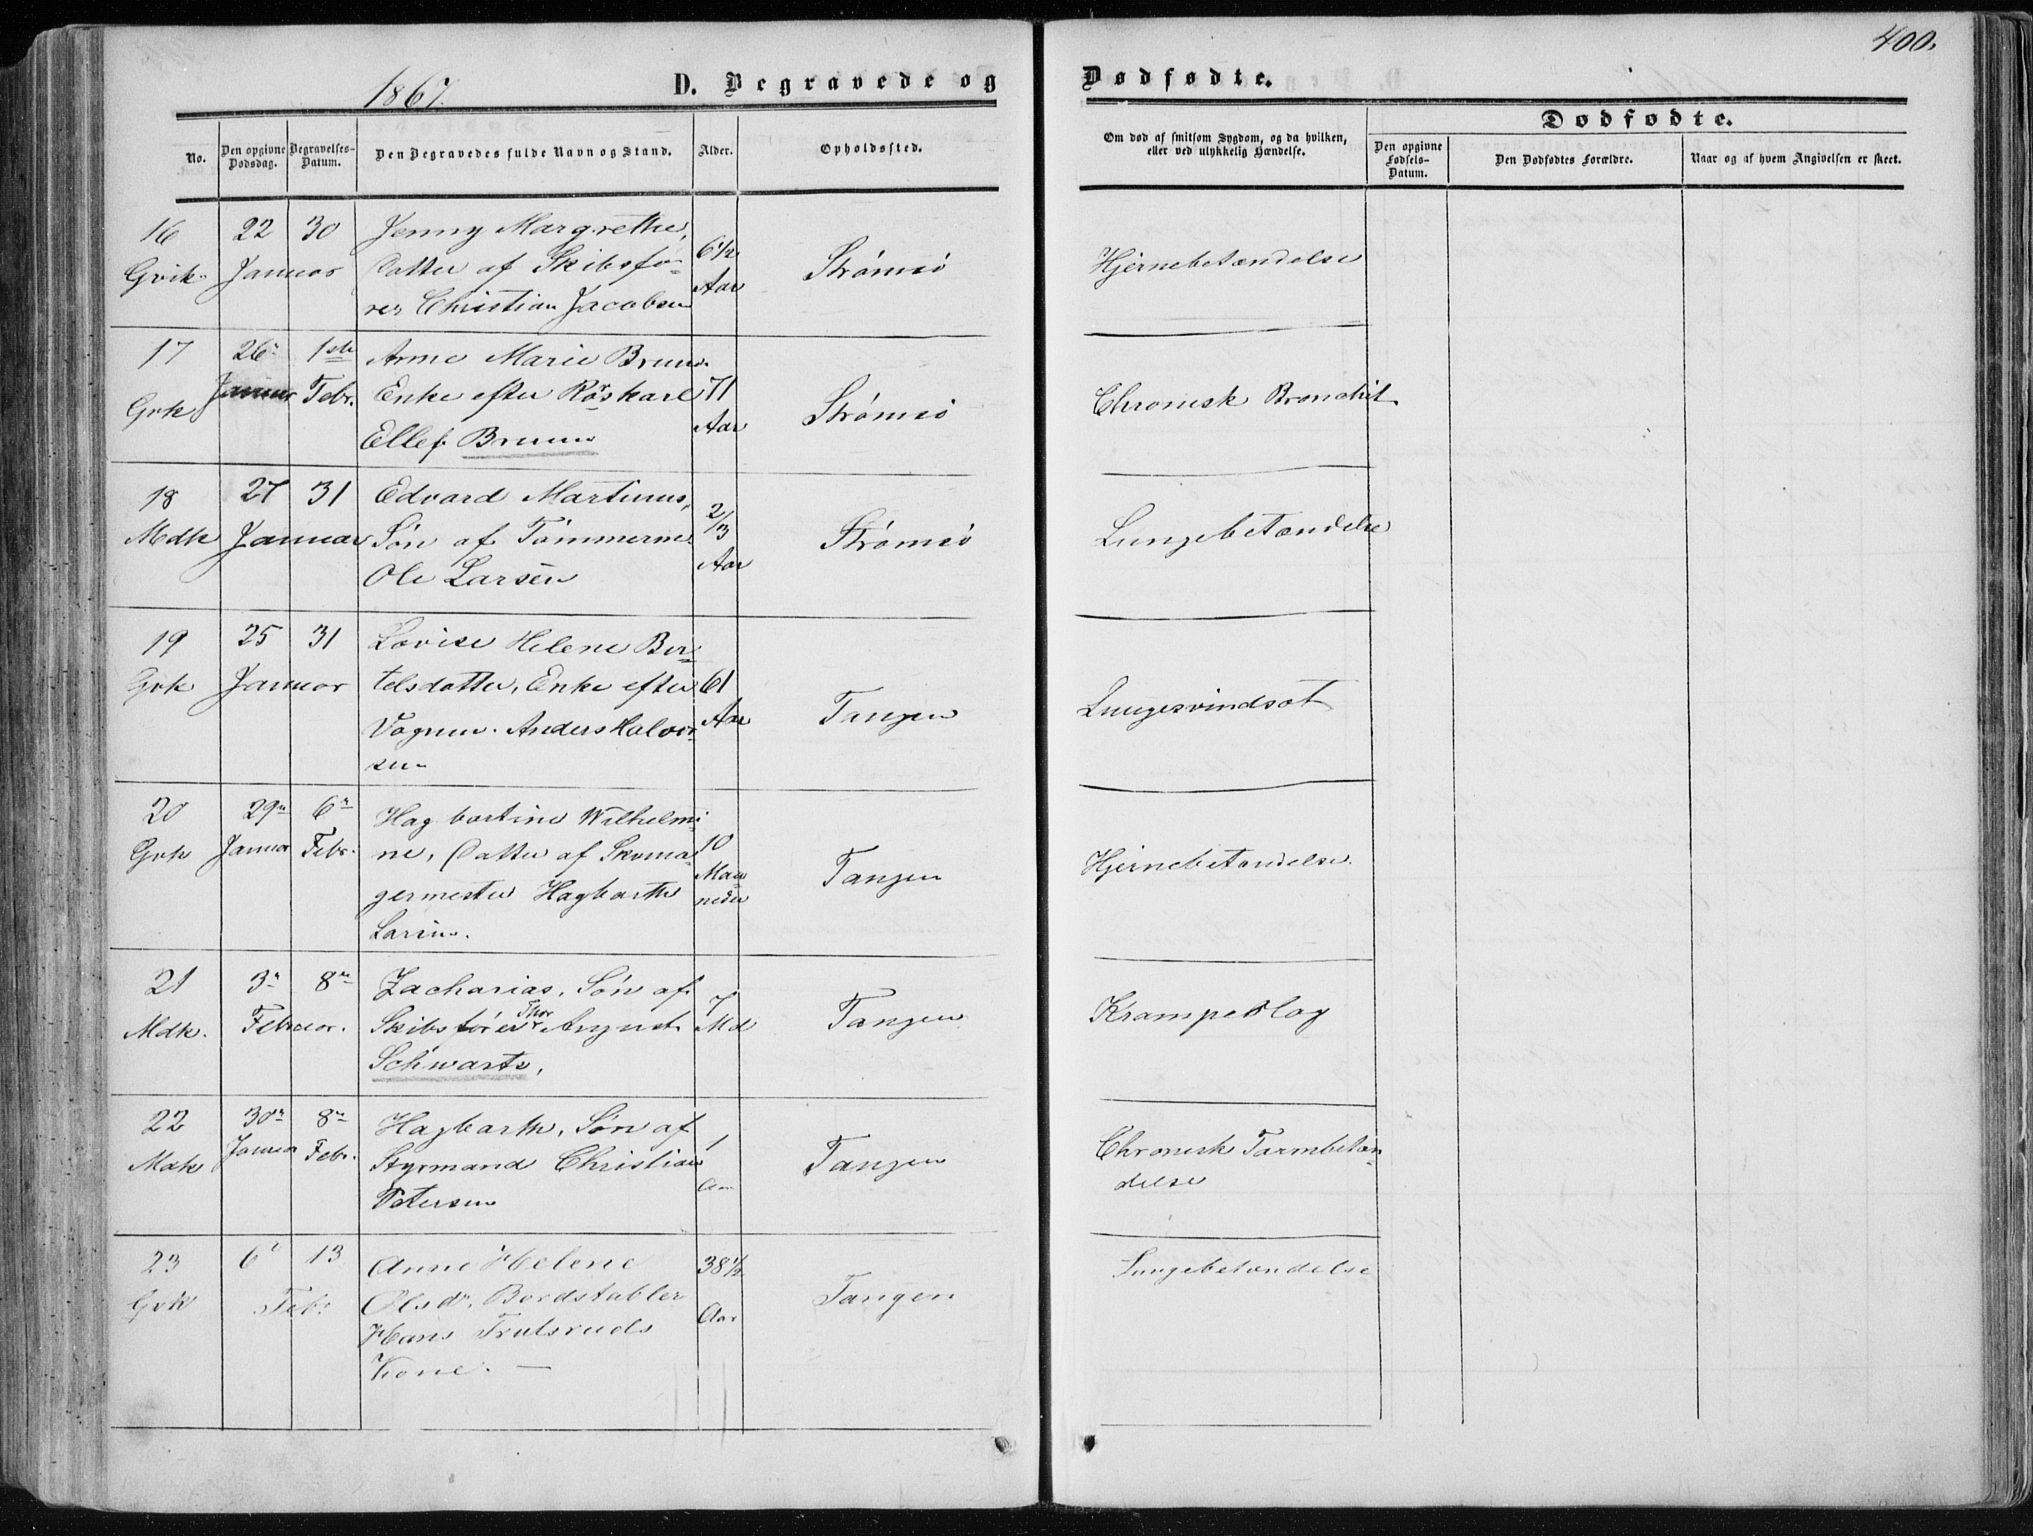 400.
1867.
D. Begravede og
Dødfødte.
No.
Den opgivne Dødsdag.
Begravelses-Datum.
Den Begravedes fulde Navn og Stand.
Alder.
Opholdssted.
Om død af smitsom Sygdom, og da hvilken,
eller ved ulykkelig Hændelse.
Dødfødte.
Den opgivne Fødsels-Datum.
Den Dødfødtes Forældre.
Naar og af hvem Angivelsen er skeet.
16 22 30 Jenny Margrethe, 6 1/2
Gvik. Januar Datter af Skibsfø- Aar Strømsø Hjernebetændelse
rer Christian Jacobsen
17 26 1ste Anne Marie Bruun
Gvk Januar Febr. Enke efter Rørskarl 71 Strømsø Chronisk Bronchit
Ellef Bruun Aar
18 27 31 Edvard Martinus, 2/3
Mdk Januar Søn af Tømmerm. Aar Strømsø Lungebetændelse
Ole Larsen
19 25 31 Lovise Helene Ber-
Gvk Januar telsdatter, Enke efter 61 Tangen Lungesvindsot
Vognm. Anders Halvor- Aar
sen
20 29n 6n Hagbartine Wilhelmi-
Gvk Januar Febr. ne, Datter af Skoma- 10 Tangen Hjernebetændelse
germester Hagbarth Maaneder
Larsen.
21 3n 8n Zacharias, Søn af 7
Mdk. Februar. Skibsfører Thor August Md Tangen Krampeslag
Schwartz,
22 30n 8n Hagbarth, Søn af 1
Mdk Januar Febr. Styrmand Christian Aar Tangen Chronisk Tarmbetæn-
Petersen delse
23 6 13 Anne Helene 38 1/2
Gvk Febr. Olsdr, Bordstabler Aar Tangen Lungebetændelse
Hans Trulsruds
Kone. —